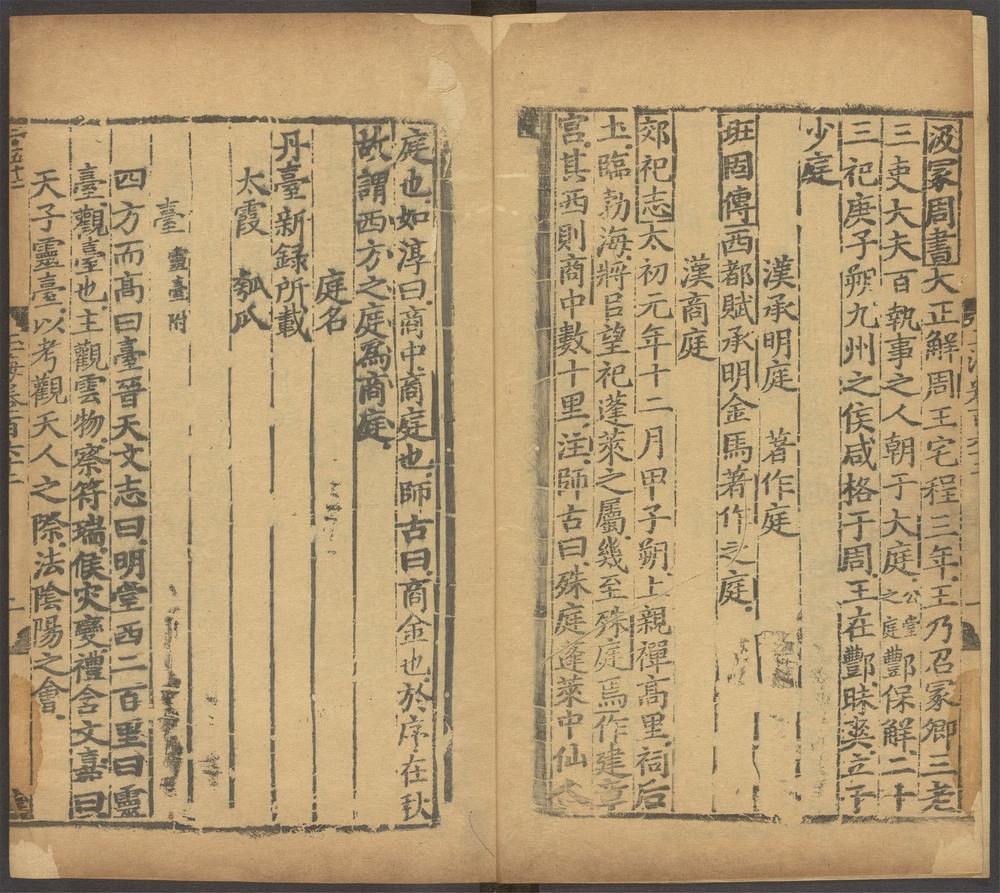 汲冢周書大正解周王宅程三年王乃召冢卿三老
三吏大夫百執事之人朝于大庭公堂之庭酆保解二十
三祀庚子朔九州之侯咸格于周王在酆昧爽立于
少庭
漢承明庭 著作庭
班固傳西都賦承明金馬著作之庭
漢商庭
郊祀志太初元年十二月甲子朔上親禪高里祠后
土臨勃海將以望祀蓬萊之屬幾至殊庭焉作建章
宮其西則商中數十里注師古曰殊庭蓬萊中仙人
庭也如淳曰商中商庭也師古曰商金也於序在秋
故謂西方之庭爲商庭
庭名
丹臺新録所載
太霞 瓠瓜
臺 靈臺附
四方而高曰臺晉天文志曰明堂西二百里曰靈
臺觀臺也主觀雲物察符瑞候灾變禮含文嘉曰
天子靈臺以考觀天人之際法陰陽之會